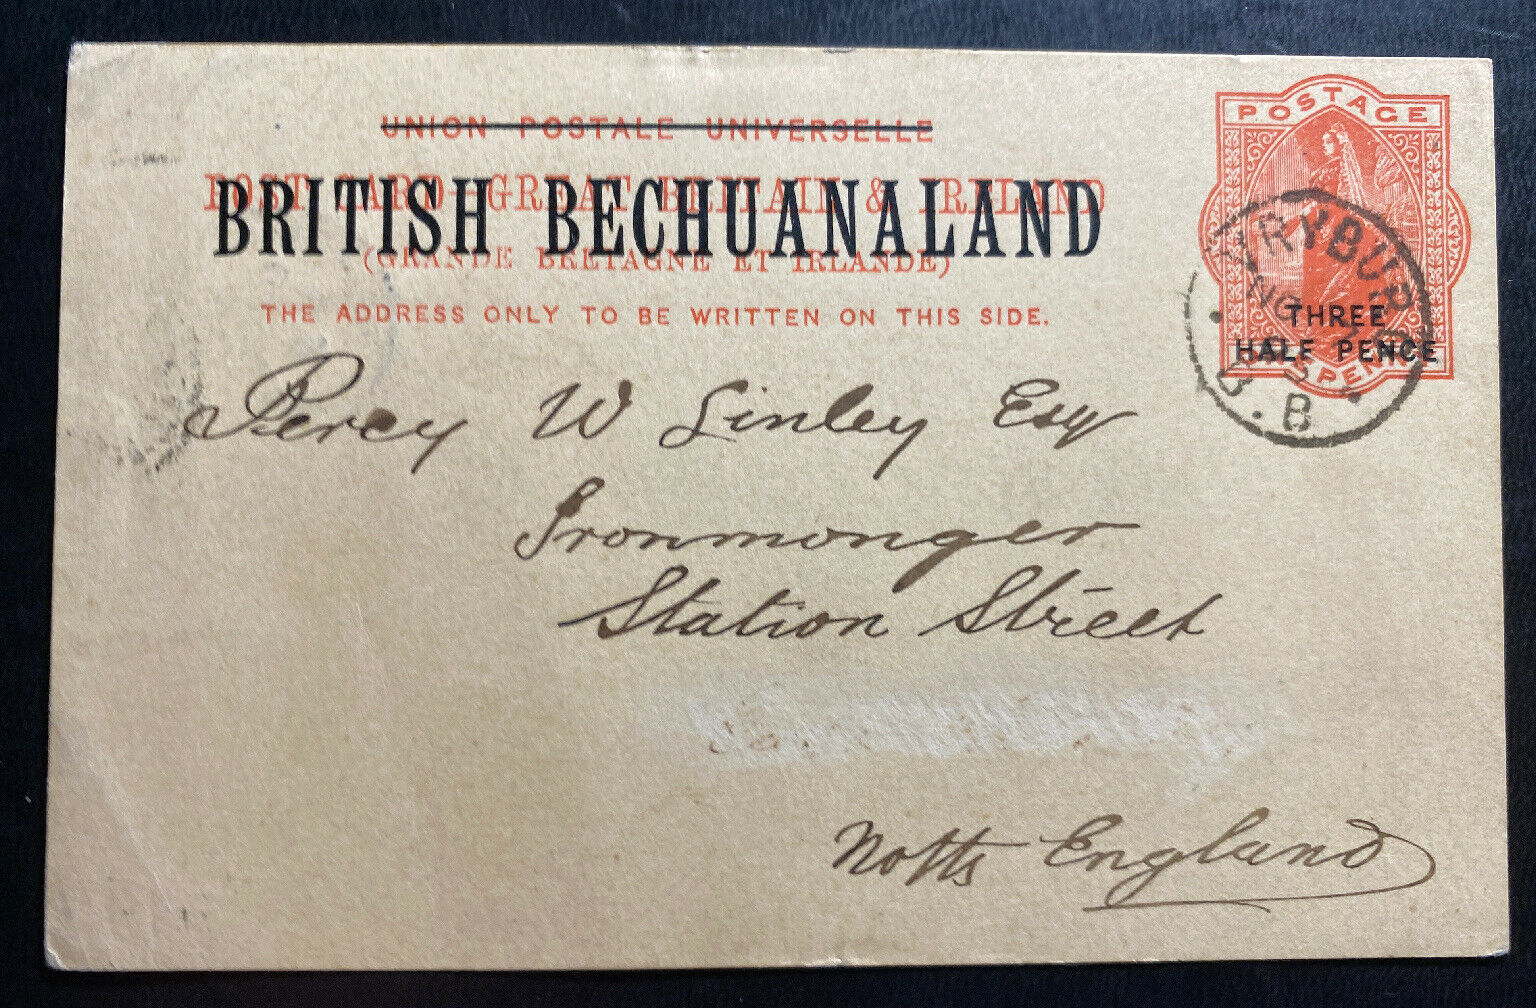 UNION POSTALE UNIVERSELLE
POST CARD - GREAT BRITAIN & IRELAND
BRITISH BECHUANALAND
(GRANDE BRETAGNE ET IRLANDE)
THE ADDRESS ONLY TO BE WRITTEN ON THIS SIDE.
POSTAGE
THREE
HALF PENCE
VRYBURG
B.B
Percy W Linley Esq
Ironmonger
Station Street
Notts England